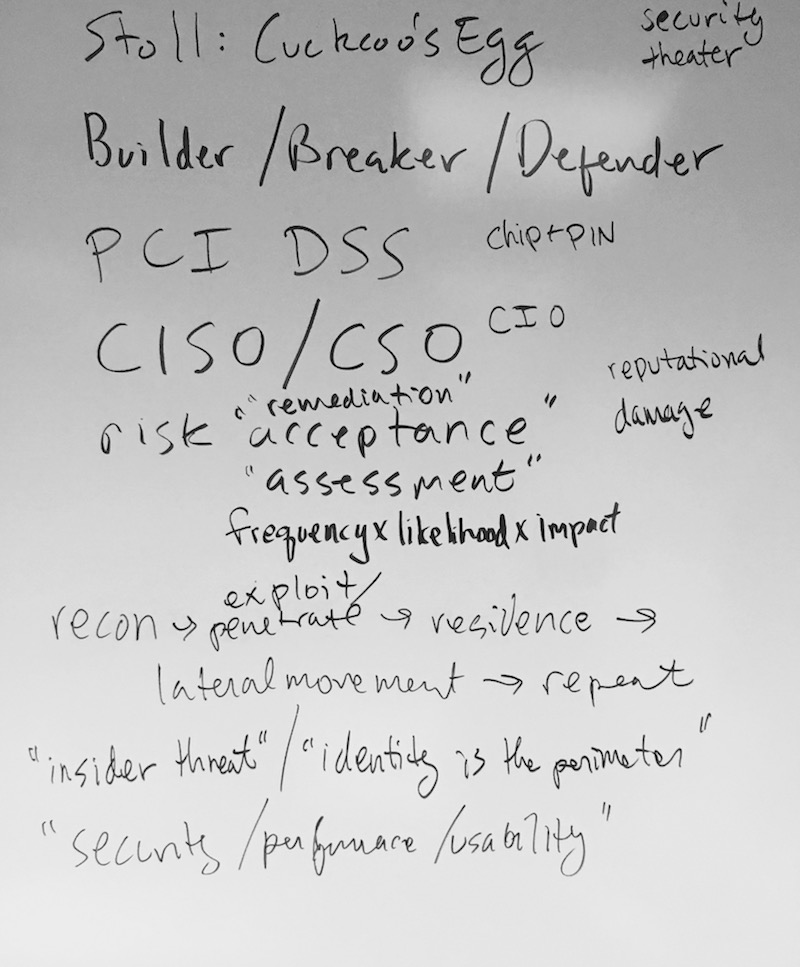 Stoll: Cuckoo's Egg
security
theater
Builder / Breaker / Defender
PCI DSS
chip + PIN
CISO/CSO CIO
reputational
damage
"remediation"
risk "acceptance"
"assessment"
frequency x likelihood x impact
exploit/
recon → penetrate → residence →
lateral movement → repeat
"insider threat" / "identity is the perimeter"
"security / perfurmace / usability"